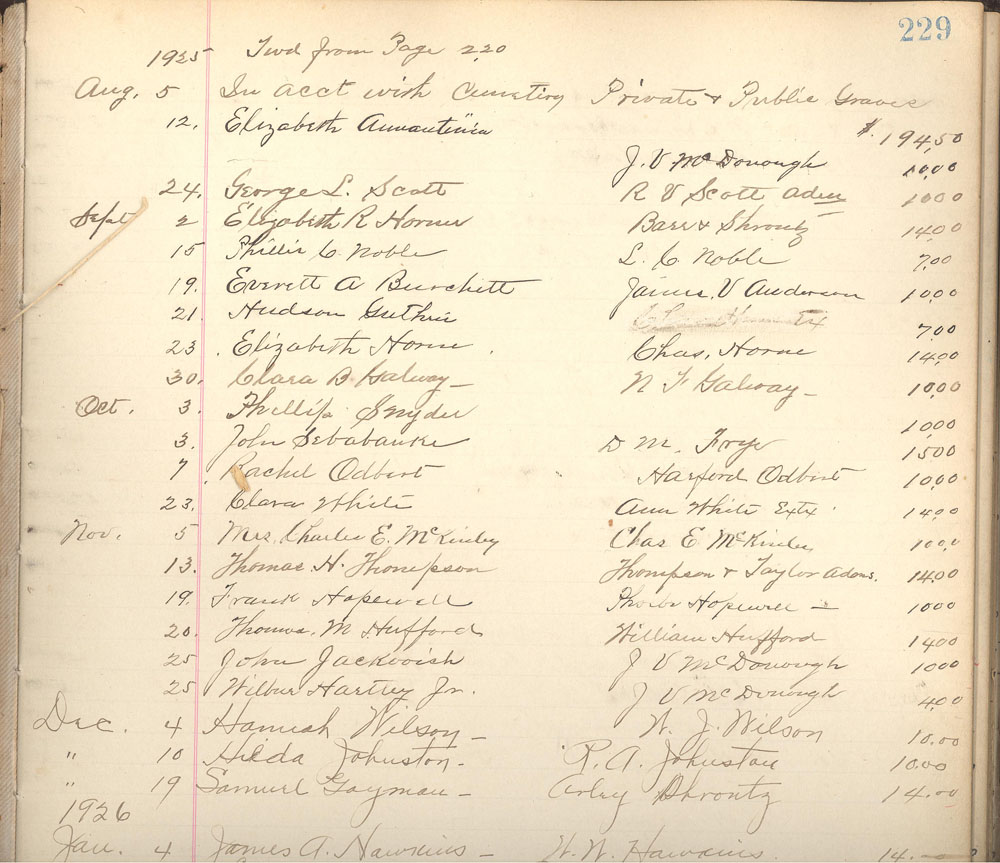 229
1925 Fwd from Page 220
Aug. 5 In acct with Cemetery Private & Public Graves $.194.50
12. Elizabeth J. V McDonough 10.00
24. George L. Scott R V Scott Adm 10 00
Sept 2 Elizabeth R Horner Barr & Shrontz 14.00
15 Phillis C. Noble L. C Noble 7.00
19. Everett A Burchett James. V Anderson 10.00
21. Hudson Guthrie 7.00
23. Elizabeth Horne. Chas. Horne 14.00
30. Clara B. Galway - N F Galway - 10.00
Oct. 3. Phillip Snyder 10.00
3. John D M. Frye 15.00
7. Rachel Odbert Harford Odbert 10.00
23. Clara White Ann White Extx. 14.00
Nov. 5 Mrs. Charles E. McKinley Chas E. McKinley 10.0
13. Thomas H. Thompson Thompson & Taylor Adms. 14.00
19. Frank Hopewell Phoebe Hopewell - 10 00
20. Thomas. M Hufford William Hufford 14 00
25 John Jackovich J V McDonough 10 00
25 Wilbur Hartley Jr. J V McDonough 4.00
Dec. 4 Hannah Wilson - W. J. Wilson 10.00
" 10 Hilda Johnston - R. A. Johnston 10.00
" 19 Samuel Gayman - Arley Shrontz 14.00
1926
Jan. 4 James A. Hawkins - W. W. Hawkins. 14.-